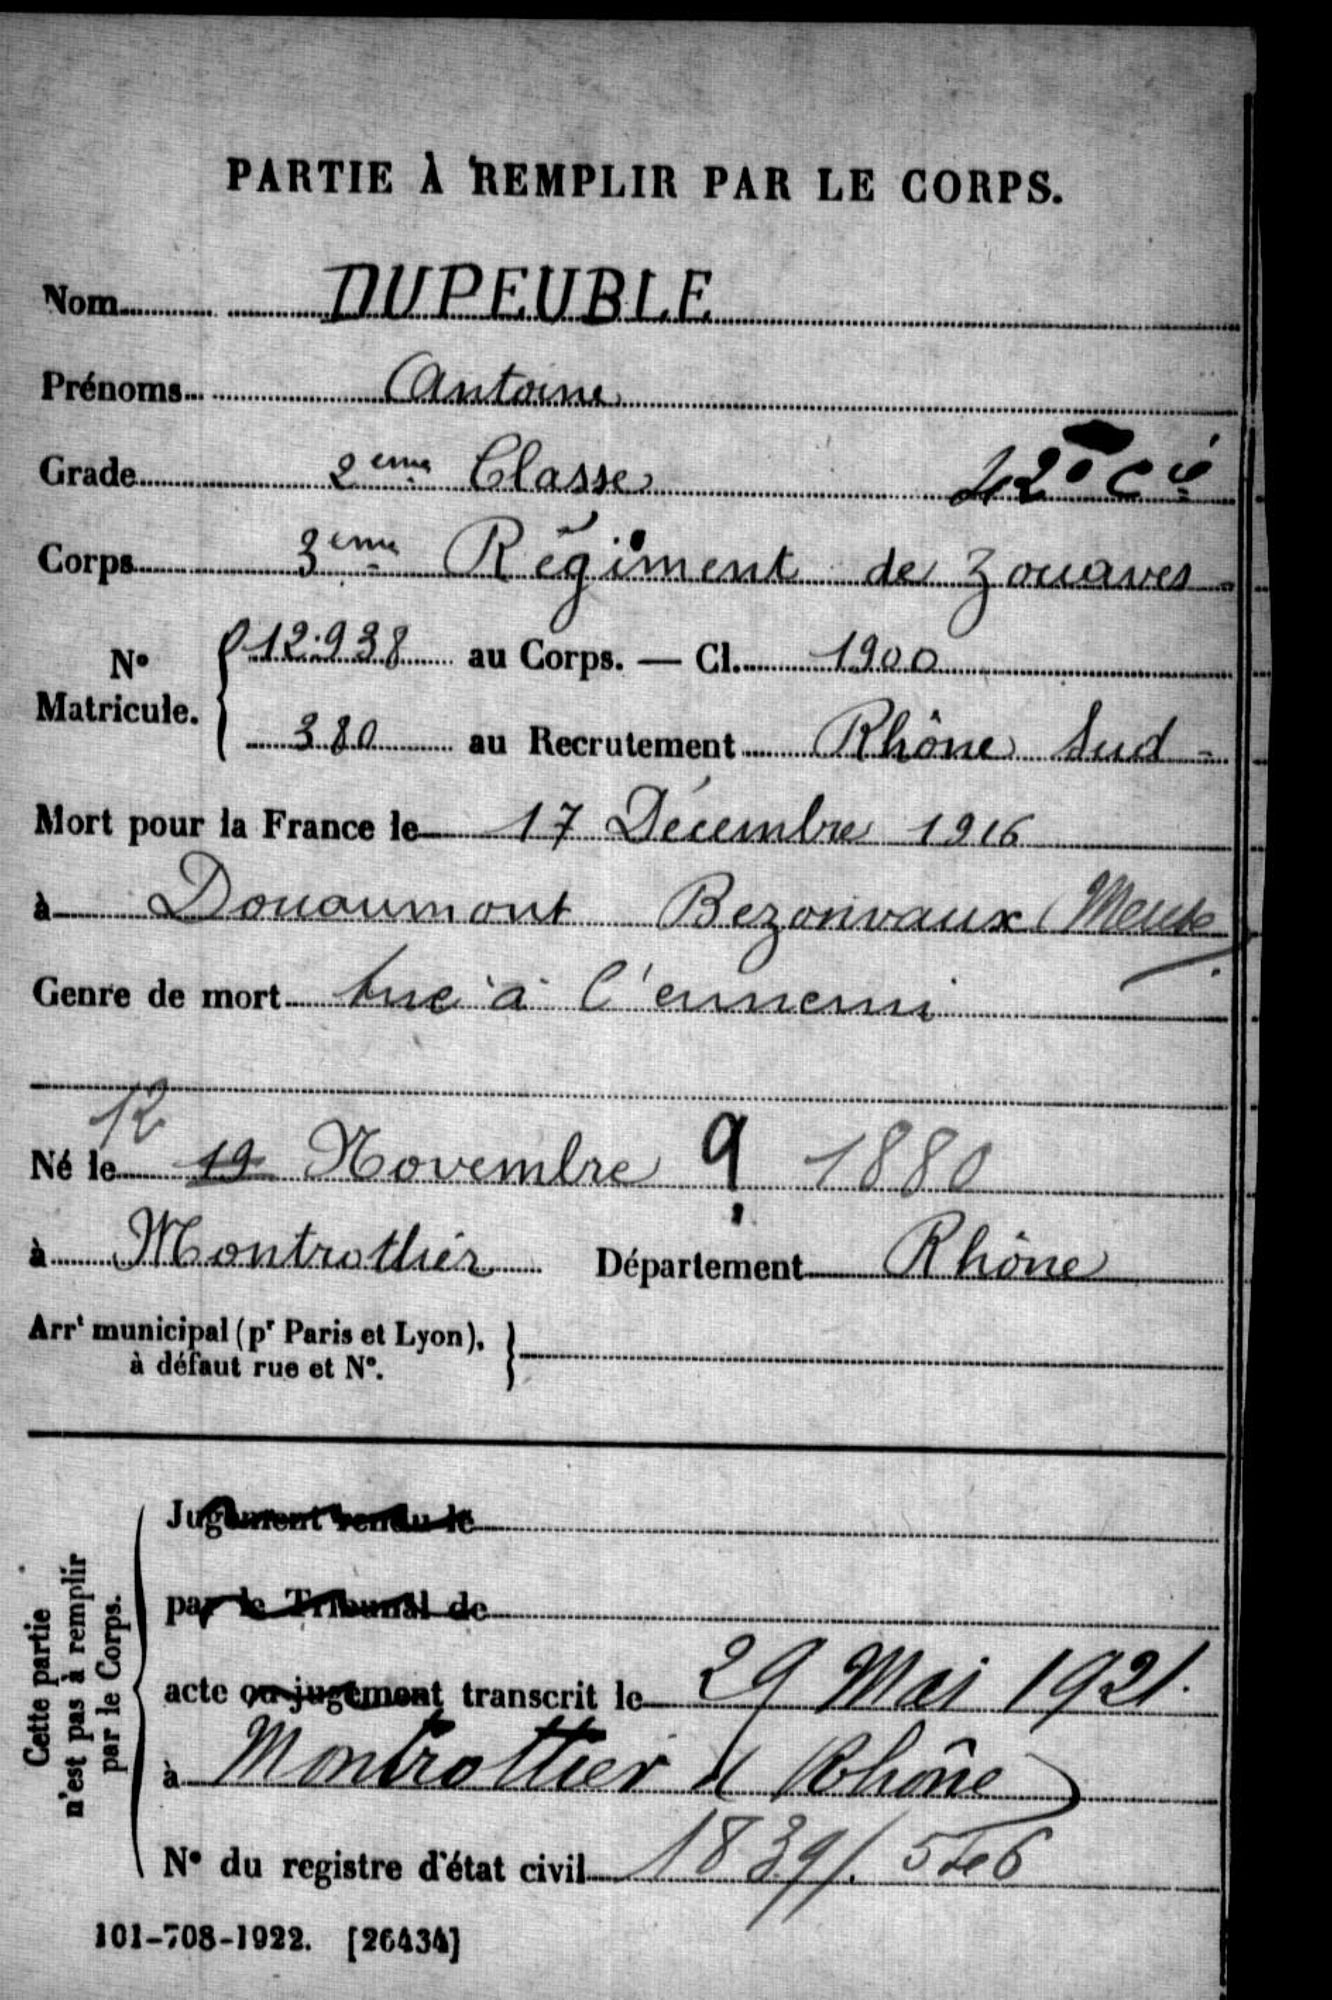 PARTIE À REMPLIR PAR LE CORPS.
Nom DUPEUBLE
Prénoms Antoine
Grade 2ème Classe 42° Cie
Corps 3ème Régiment de Zouaves
N° Matricule. 12.938 au Corps. — Cl. 1900
380 au Recrutement Rhône Sud
Mort pour la France le 17 Décembre 1916
à Douaumont Bezonvaux (Meuse
Genre de mort tué à l'ennemi
12
Né le 19 Novembre ? 1880
à Montrottier Département Rhône
Arrt municipal (pr Paris et Lyon),
à défaut rue et N°.
Cette partie
n'est pas à remplir
par le Corps.
Jugement rendu le
par le Tribunal de
acte ou jugement transcrit le 29 Mai 1921.
à Montrottier (Rhône)
N° du registre d'état civil 1839/.
101-708-1922. [26434]